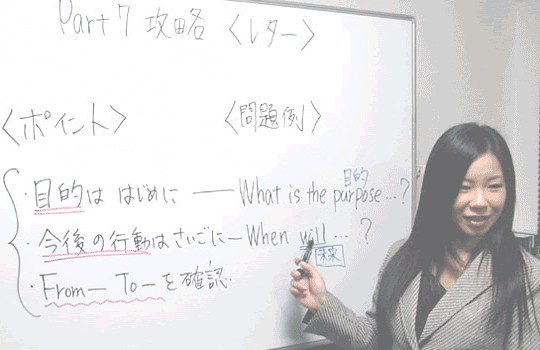 Part 7 攻略 〈レター〉
〈ポイント〉 〈問題例〉
目的
・目的は はじめに ― What is the purpose…?
・今後の行動はさいごに ― When will … ?
未来
・From― To― を確認.